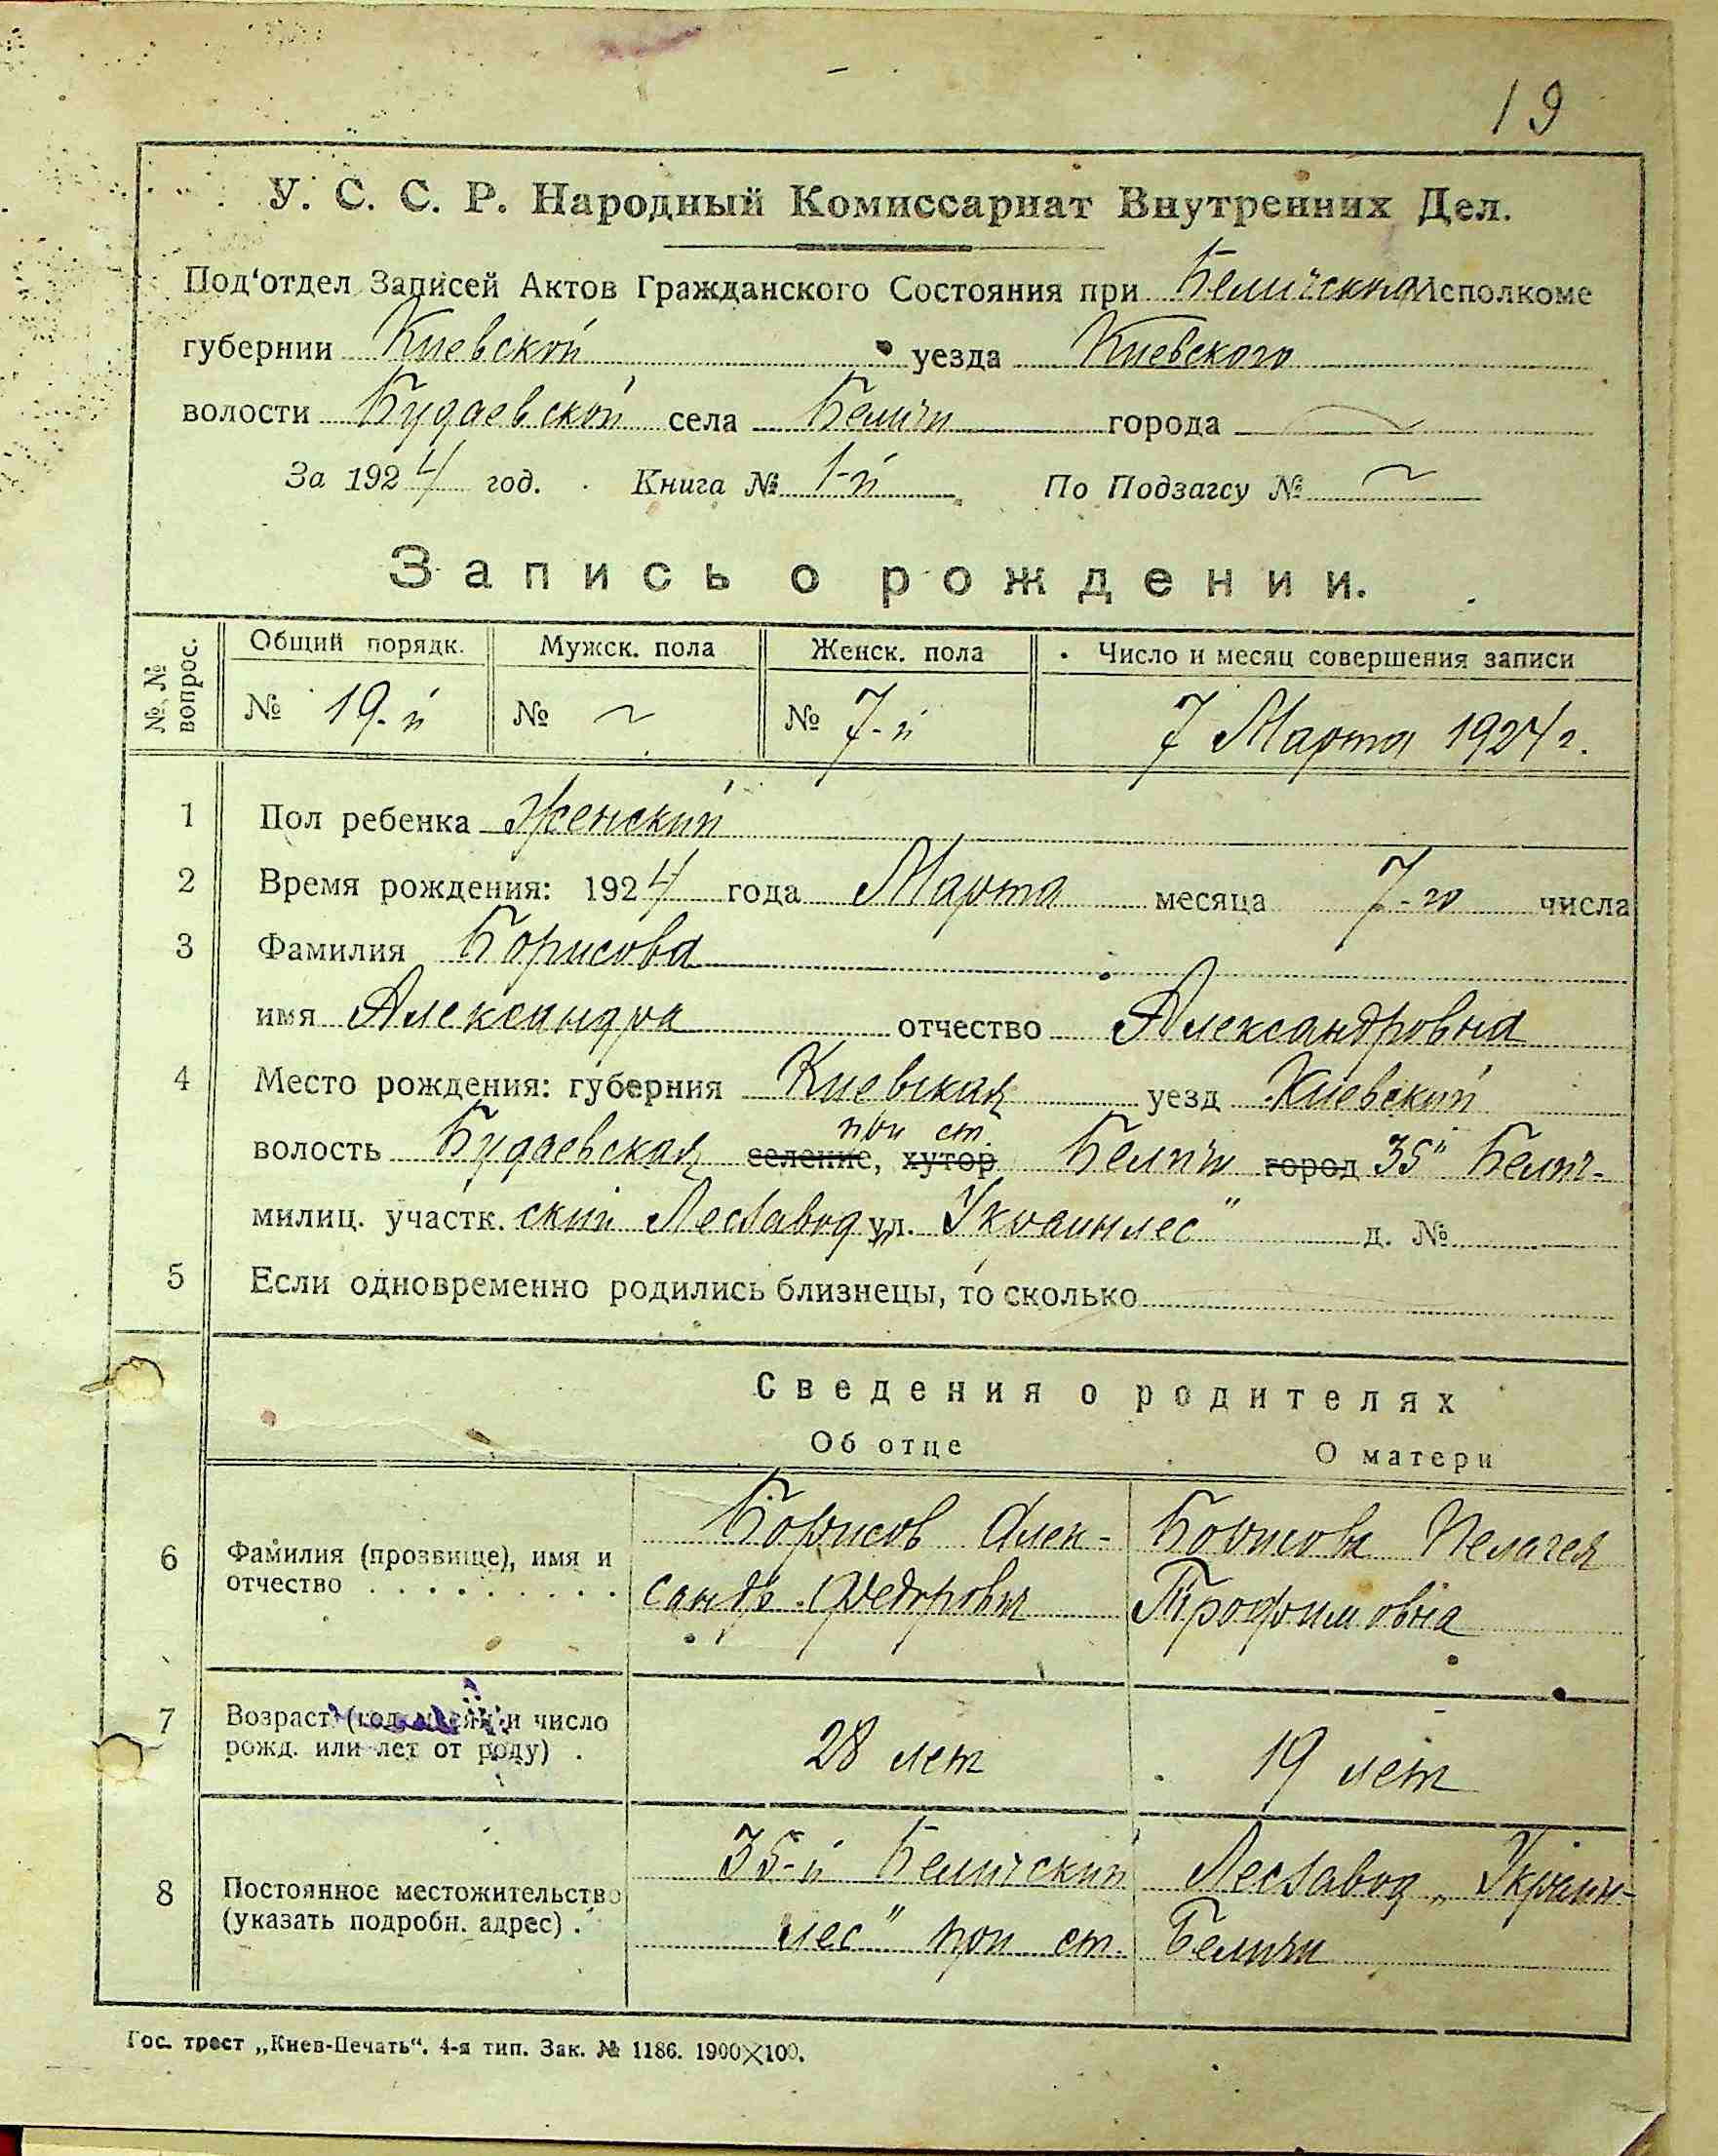 19
У. С. С. Р. Народный Комиссариат Внутренних Дел.
Под'отдел Записей Актов Гражданского Состояния при Беличском Исполкоме
губернии Киевской уезда Киевского
волости Будаевской села Беличи города
За 1924 год. Книга № 1-й По Подзагсу №
Запись о рождении.
№ № вопрос. Общий порядк. Мужск. пола Женск. пола Число и месяц совершения записи
№ 19-й № № 7-й 7 Марта 1924 г.
1 Пол ребенка Женский
2 Время рождения: 1924 года Марта месяца 7-го числа
3 Фамилия Борисова
имя Александра отчество Александровна
4 Место рождения: губерния Киевская уезд Киевский
при ст.
волость Будаевская селение, хутор Беличи город 35" Белич-
милиц. участк. ский Лесзавод ул. „Украинлес" д. №
5 Если одновременно родились близнецы, то сколько
Сведения о родителях
Об отце О матери
6 Фамилия (прозвище), имя и отчество Борисов Алек- Борисова Пелагея
сандр Федорович Трофимовна
7 Возраст (год, месяц и число рожд. или лет от роду) 28 лет 19 лет
8 Постоянное местожительство (указать подробн. адрес) 35-й Беличский Лесзавод „Украин-
лес" при ст. Беличи
Гос. трест „Киев-Печать". 4-я тип. Зак. № 1186. 1900×100.